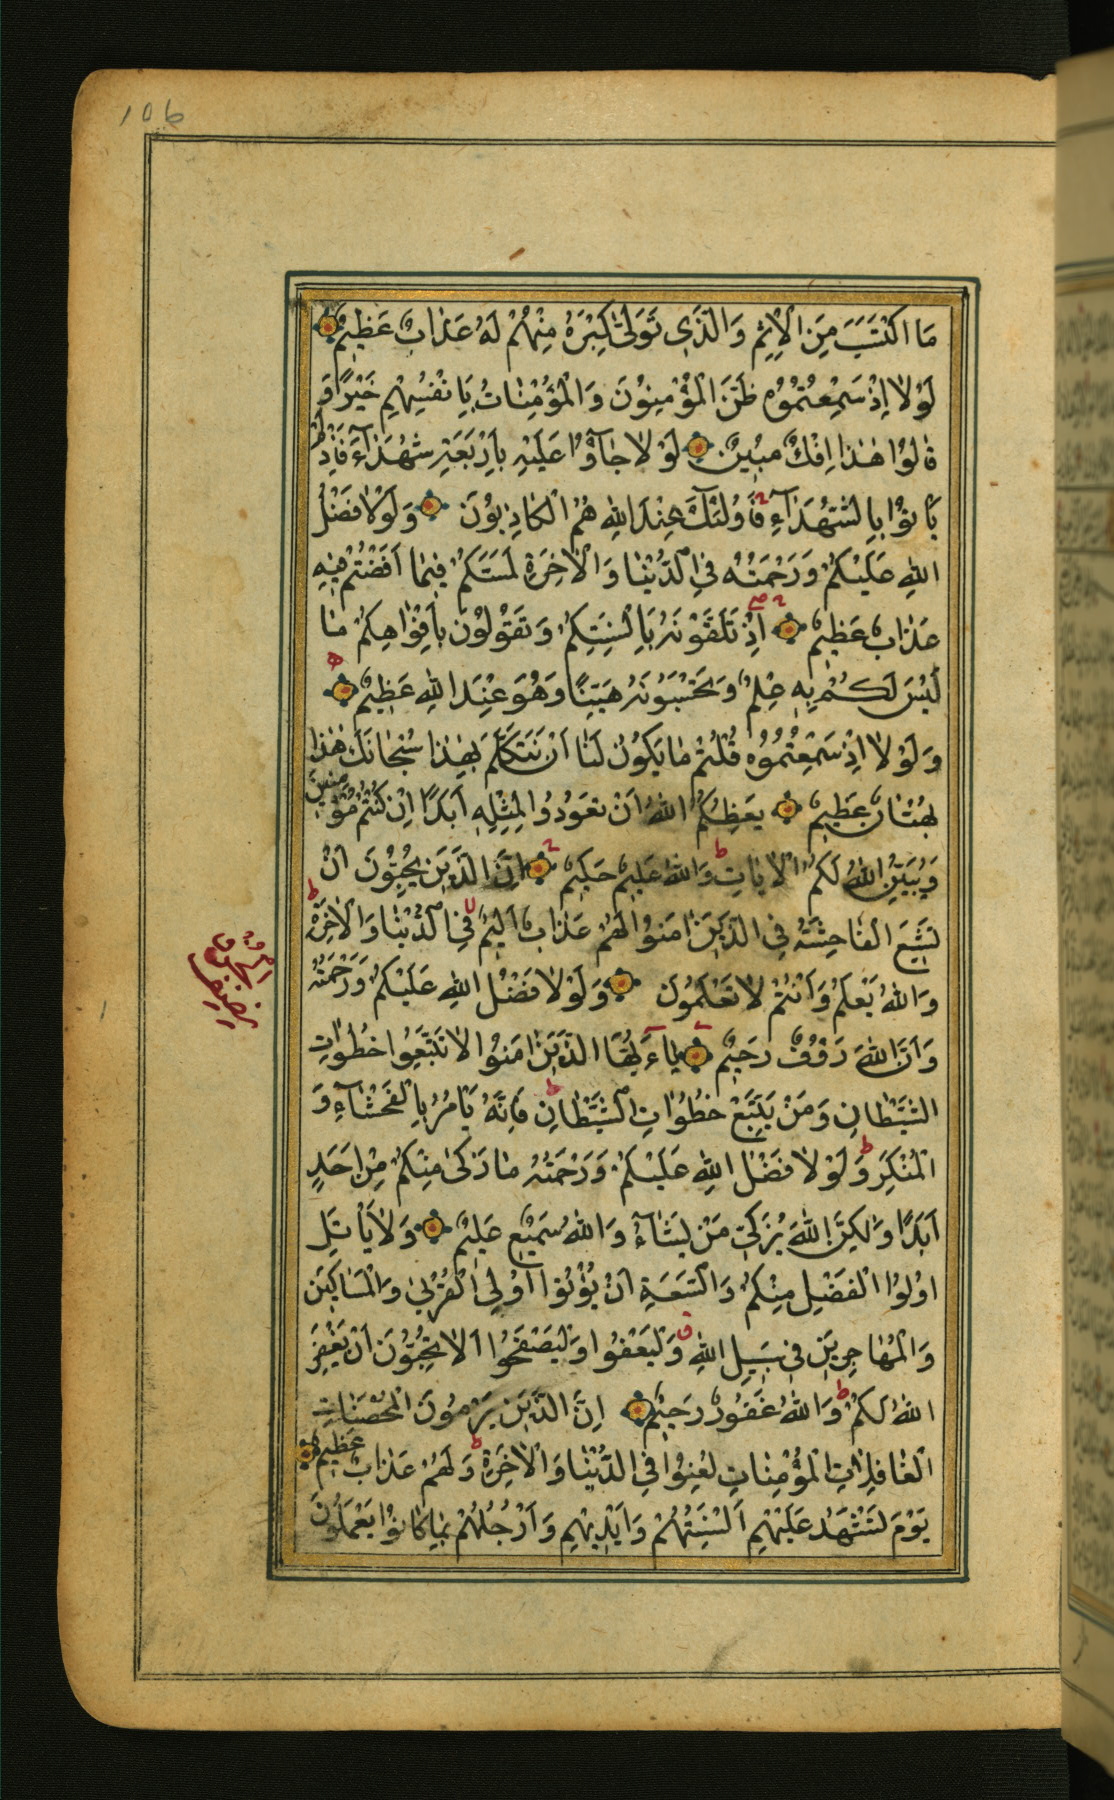 106
مَا اكْتَسَبَ مِنَ الْاِثْمِ وَالَّذِي تَوَلّٰى كِبْرَهُ مِنْهُمْ لَهُ عَذَابٌ عَظِيمٌ
لَوْلَا اِذْ سَمِعْتُمُوهُ ظَنَّ الْمُؤْمِنُونَ وَالْمُؤْمِنَاتُ بِاَنْفُسِهِمْ خَيْرًا وَ
قَالُوا هٰذَا اِفْكٌ مُبِينٌ لَوْلَا جَآؤُا عَلَيْهِ بِاَرْبَعَةِ شُهَدَآءَ فَاِذْ لَمْ
يَاْتُوا بِالشُّهَدَآءِ فَاُولٰئِكَ عِنْدَ اللهِ هُمُ الْكَاذِبُونَ وَلَوْلَا فَضْلُ
اللهِ عَلَيْكُمْ وَرَحْمَتُهُ فِي الدُّنْيَا وَالْاٰخِرَةِ لَمَسَّكُمْ فِيمَا اَفَضْتُمْ فِيهِ
عَذَابٌ عَظِيمٌ اِذْ تَلَقَّوْنَهُ بِاَلْسِنَتِكُمْ وَتَقُولُونَ بِاَفْوَاهِكُمْ مَا
لَيْسَ لَكُمْ بِهِ عِلْمٌ وَتَحْسَبُونَهُ هَيِّنًا وَهُوَ عِنْدَ اللهِ عَظِيمٌ
وَلَوْلَا اِذْ سَمِعْتُمُوهُ قُلْتُمْ مَا يَكُونُ لَنَا اَنْ نَتَكَلَّمَ بِهٰذَا سُبْحَانَكَ هٰذَا
بُهْتَانٌ عَظِيمٌ يَعِظُكُمُ اللهُ اَنْ تَعُودُوا لِمِثْلِهِ اَبَدًا اِنْ كُنْتُمْ مُؤْمِنِينَ
وَيُبَيِّنُ اللهُ لَكُمُ الْاٰيَاتِ وَاللهُ عَلِيمٌ حَكِيمٌ اِنَّ الَّذِينَ يُحِبُّونَ اَنْ
تَشِيعَ الْفَاحِشَةُ فِي الَّذِينَ اٰمَنُوا لَهُمْ عَذَابٌ اَلِيمٌ فِي الدُّنْيَا وَالْاٰخِرَةِ
وَاللهُ يَعْلَمُ وَاَنْتُمْ لَا تَعْلَمُونَ وَلَوْلَا فَضْلُ اللهِ عَلَيْكُمْ وَرَحْمَتُهُ
وَاَنَّ اللهَ رَؤُفٌ رَحِيمٌ يَآ اَيُّهَا الَّذِينَ اٰمَنُوا لَا تَتَّبِعُوا خُطُوَاتِ
الشَّيْطَانِ وَمَنْ يَتَّبِعْ خُطُوَاتِ الشَّيْطَانِ فَاِنَّهُ يَاْمُرُ بِالْفَحْشَآءِ وَ
الْمُنْكَرِ وَلَوْلَا فَضْلُ اللهِ عَلَيْكُمْ وَرَحْمَتُهُ مَا زَكٰى مِنْكُمْ مِنْ اَحَدٍ
اَبَدًا وَلٰكِنَّ اللهَ يُزَكِّي مَنْ يَشَآءُ وَاللهُ سَمِيعٌ عَلِيمٌ وَلَا يَاْتَلِ
اُولُوا الْفَضْلِ مِنْكُمْ وَالسَّعَةِ اَنْ يُؤْتُوا اُولِي الْقُرْبٰى وَالْمَسَاكِينَ
وَالْمُهَاجِرِينَ فِي سَبِيلِ اللهِ وَلْيَعْفُوا وَلْيَصْفَحُوا اَلَا تُحِبُّونَ اَنْ يَغْفِرَ
اللهُ لَكُمْ وَاللهُ غَفُورٌ رَحِيمٌ اِنَّ الَّذِينَ يَرْمُونَ الْمُحْصَنَاتِ
الْغَافِلَاتِ الْمُؤْمِنَاتِ لُعِنُوا فِي الدُّنْيَا وَالْاٰخِرَةِ وَلَهُمْ عَذَابٌ عَظِيمٌ
يَوْمَ تَشْهَدُ عَلَيْهِمْ اَلْسِنَتُهُمْ وَاَيْدِيهِمْ وَاَرْجُلُهُمْ بِمَا كَانُوا يَعْمَلُونَ